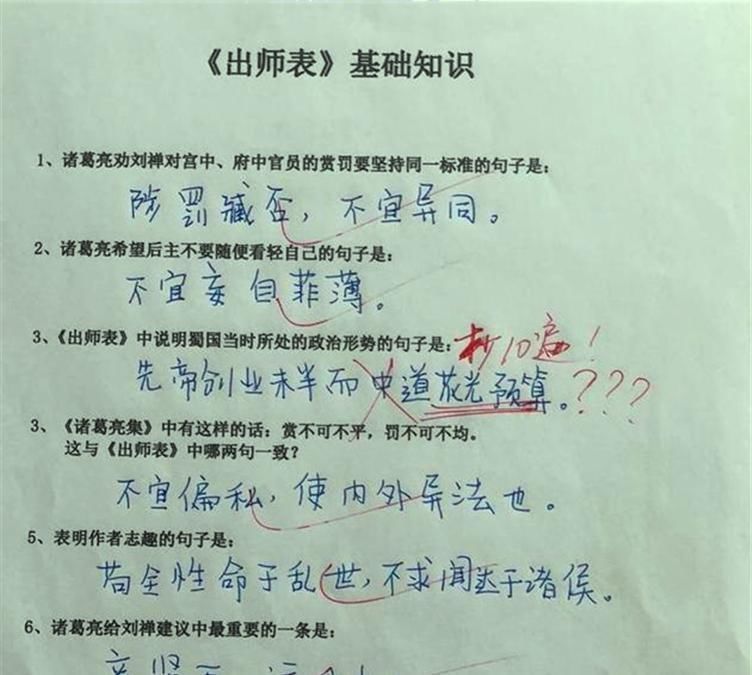 《出师表》基础知识
1、诸葛亮劝刘禅对宫中、府中官员的赏罚要坚持同一标准的句子是:
陟罚臧否，不宜异同。
2、诸葛亮希望后主不要随便看轻自己的句子是:
不宜妄自菲薄。
3、《出师表》中说明蜀国当时所处的政治形势的句子是:
抄10遍！
先帝创业未半而中道花光预算。???
3、《诸葛亮集》中有这样的话：赏不可不平，罚不可不均。
这与《出师表》中哪两句一致?
不宜偏私，使内外异法也。
5、表明作者志趣的句子是:
苟全性命于乱世，不求闻达于诸侯。
6、诸葛亮给刘禅建议中最重要的一条是: